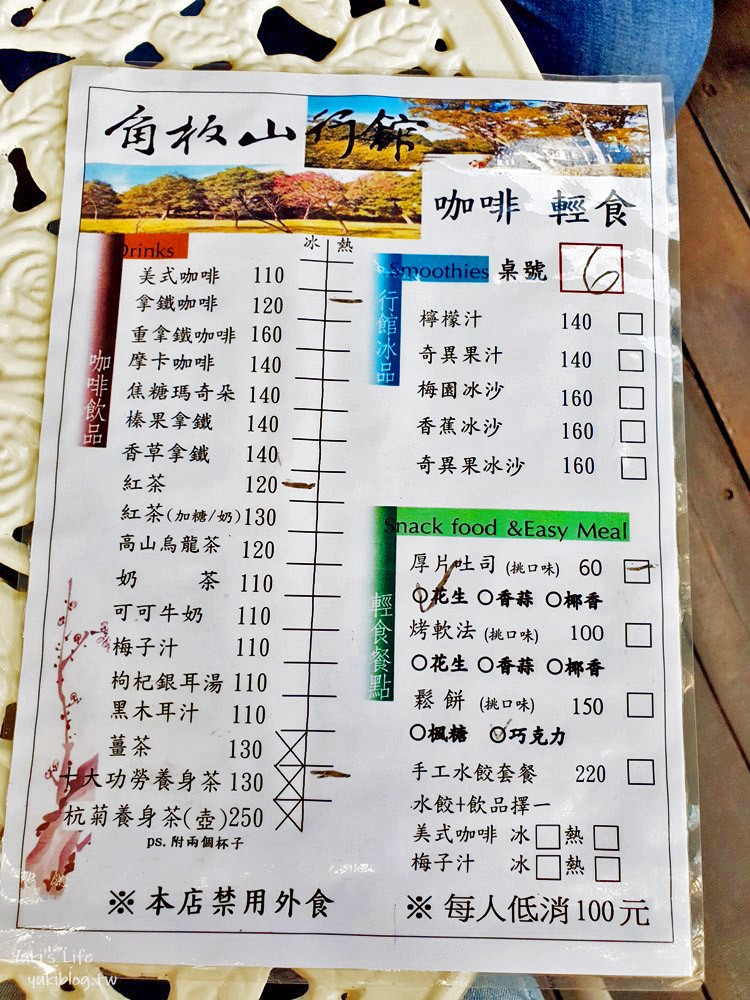 角板山行館
咖啡 輕食
Drinks
冰 熱
咖啡飲品
美式咖啡 110
拿鐵咖啡 120
重拿鐵咖啡 160
摩卡咖啡 140
焦糖瑪奇朵 140
榛果拿鐵 140
香草拿鐵 140
紅茶 120
紅茶(加糖/奶) 130
高山烏龍茶 120
奶 茶 110
可可牛奶 110
梅子汁 110
枸杞銀耳湯 110
黑木耳汁 110
薑茶 130
十大功勞養身茶 130
杭菊養身茶(壺) 250
ps. 附兩個杯子
※ 本店禁用外食
Smoothies 桌號 6
行館冰品
檸檬汁 140
奇異果汁 140
梅園冰沙 160
香蕉冰沙 160
奇異果冰沙 160
Snack food &Easy Meal
輕食餐點
厚片吐司 (挑口味) 60
花生 香蒜 椰香
烤軟法 (挑口味) 100
花生 香蒜 椰香
鬆餅 (挑口味) 150
楓糖 巧克力
手工水餃套餐 220
水餃+飲品擇一
美式咖啡 冰 熱
梅子汁 冰 熱
※ 每人低消100元
Yuki's Life
yukiblog.tw